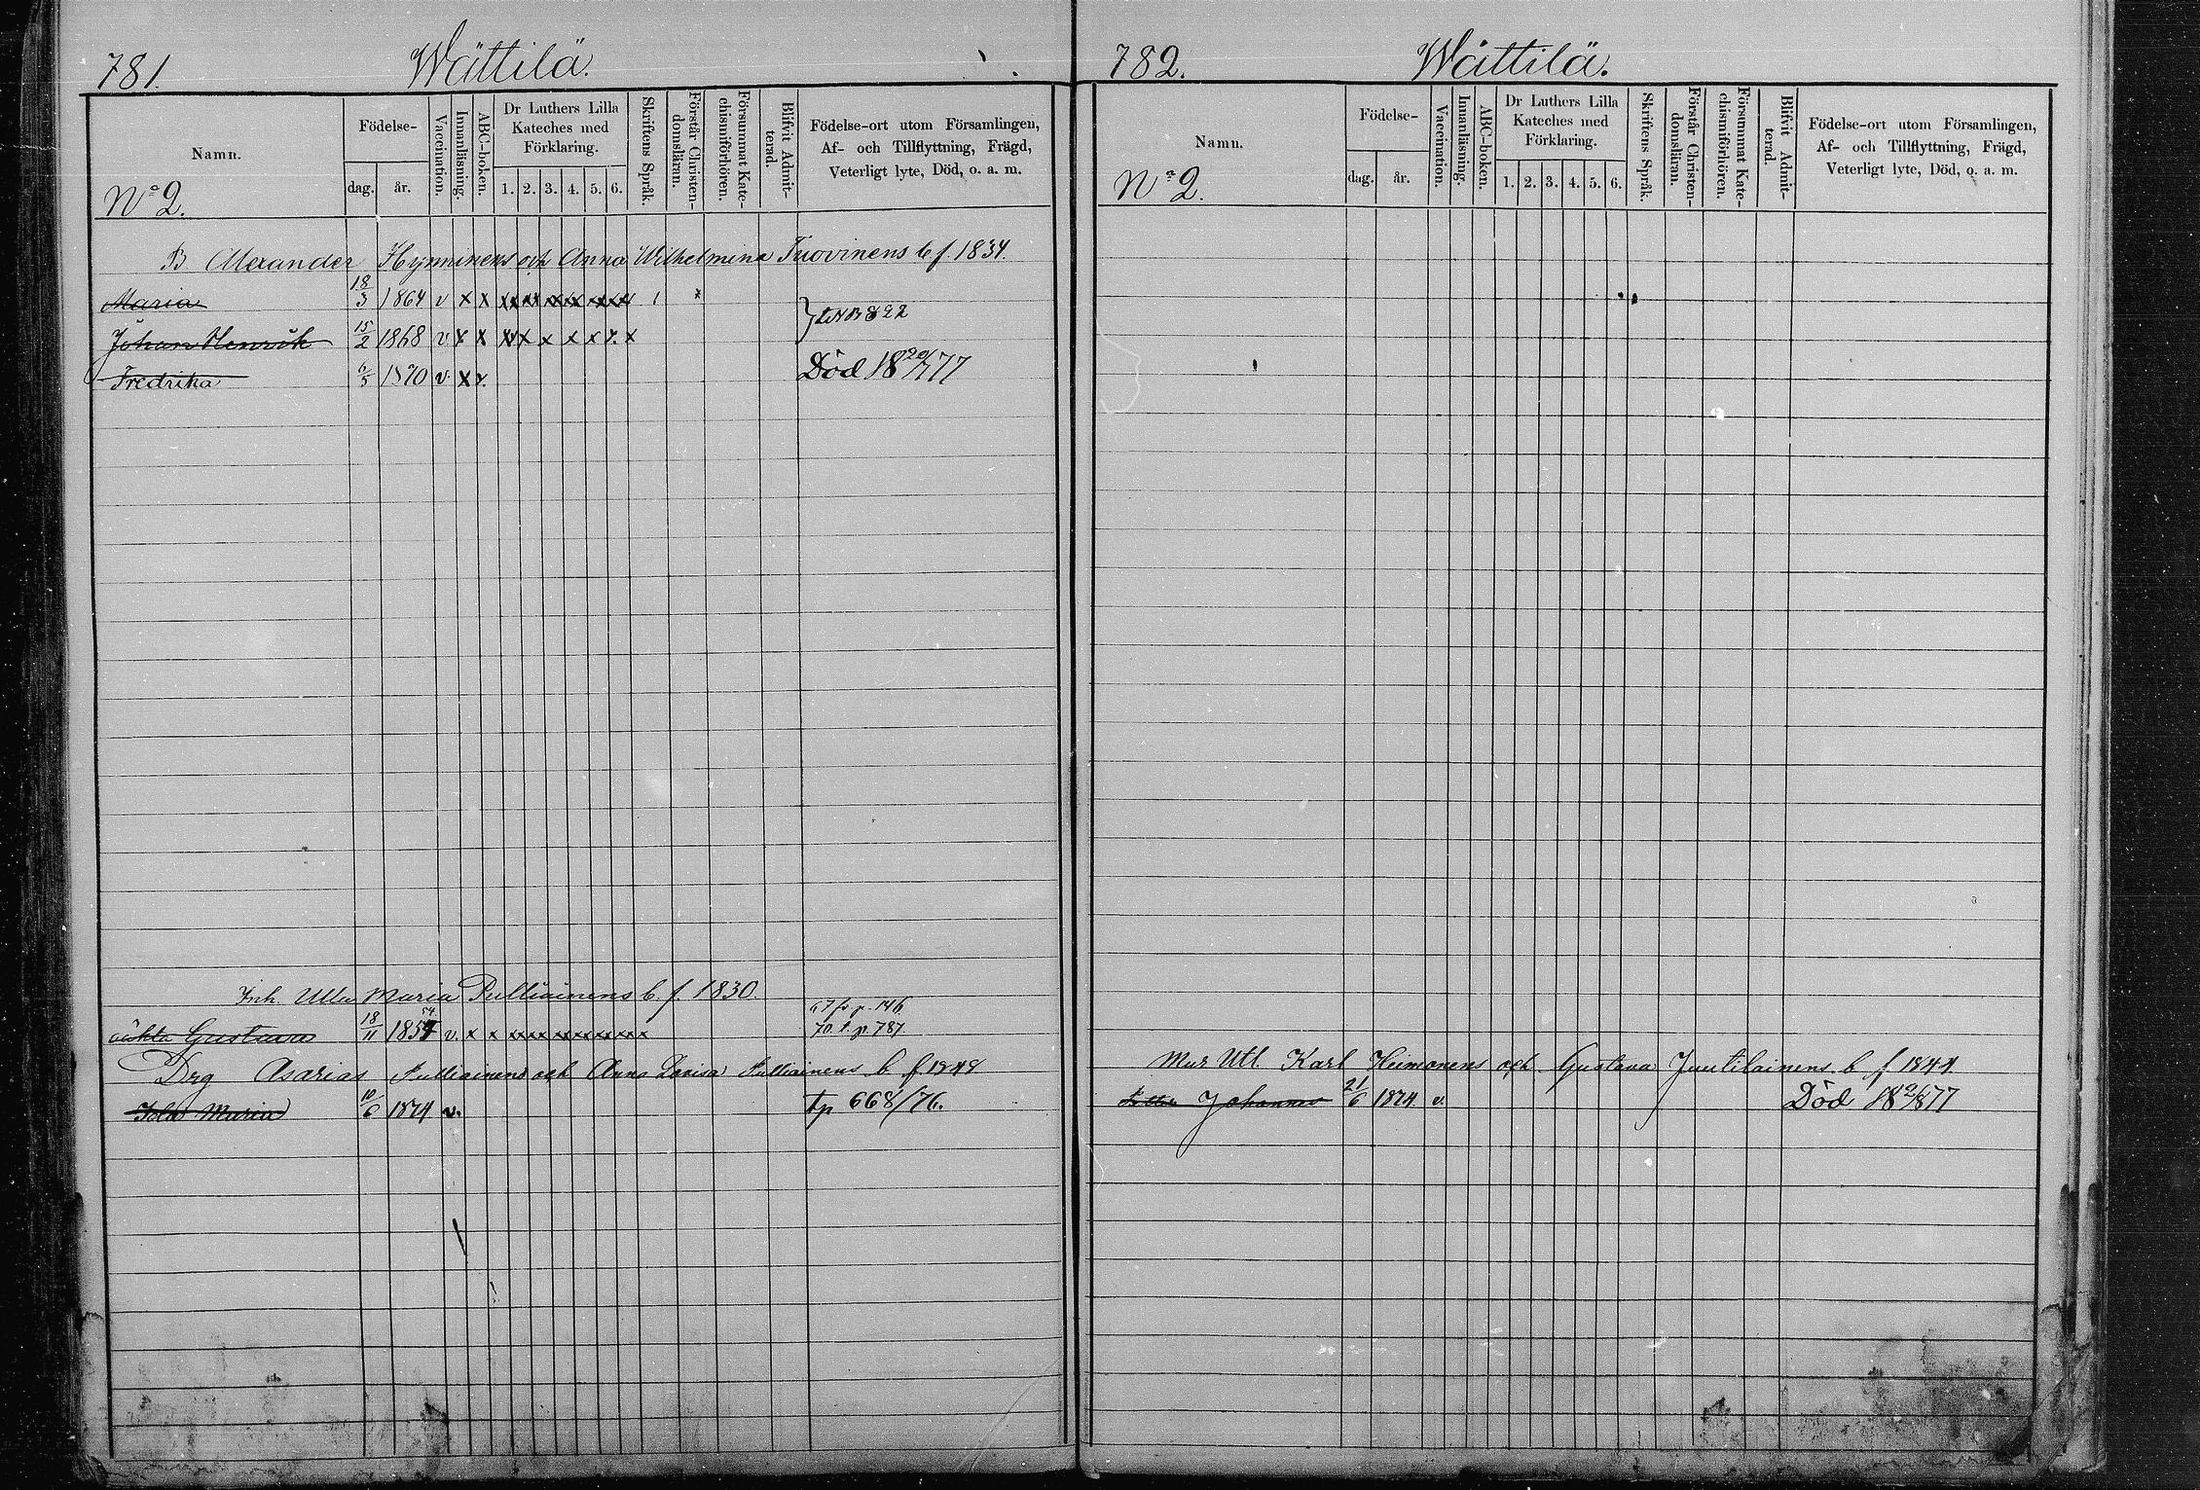 781. Wättilä.
Namn.
Födelse-
dag. år.
Vaccination.
Innanläsning.
ABC-boken.
Dr Luthers Lilla
Kateches med
Förklaring.
1. 2. 3. 4. 5. 6.
Skriftens Språk.
Förstår Christen-
domsläran.
Försummat Kate-
chismiförhören.
Blifvit Admit-
terad.
Födelse-ort utom Församlingen,
Af- och Tillflyttning, Frägd,
Veterligt lyte, Död, o. a. m.
No 2.
B Alexander Hynninens och Anna Wilhelmina Tuovinens b f. 1834.
Maria 18/3 1864 v x x
Johan Henrik 15/2 1868 v x x
Fredrika 6/5 1870 v. x Död 18 20/7 77
Inh. Ulla Maria Pulliainens b. f. 1830.
Gustava 18/11 185 v. x x 70 t. p. 787
Drg Asarias Pulliainens och Anna Lovisa Pulliainens b f 1848
Maria 10/6 1874 v. tp 668/76.
782. Wättilä.
Namn.
Födelse-
dag. år.
Vaccination.
Innanläsning.
ABC-boken.
Dr Luthers Lilla
Kateches med
Förklaring.
1. 2. 3. 4. 5. 6.
Skriftens Språk.
Förstår Christen-
domsläran.
Försummat Kate-
chismiförhören.
Blifvit Admit-
terad.
Födelse-ort utom Församlingen,
Af- och Tillflyttning, Frägd,
Veterligt lyte, Död, o. a. m.
No 2.
Mur Utl. Karl Heimonens och Gustava Juutilainens b f 1844
Johannes 21/6 1874 v. Död 18 2/8 77